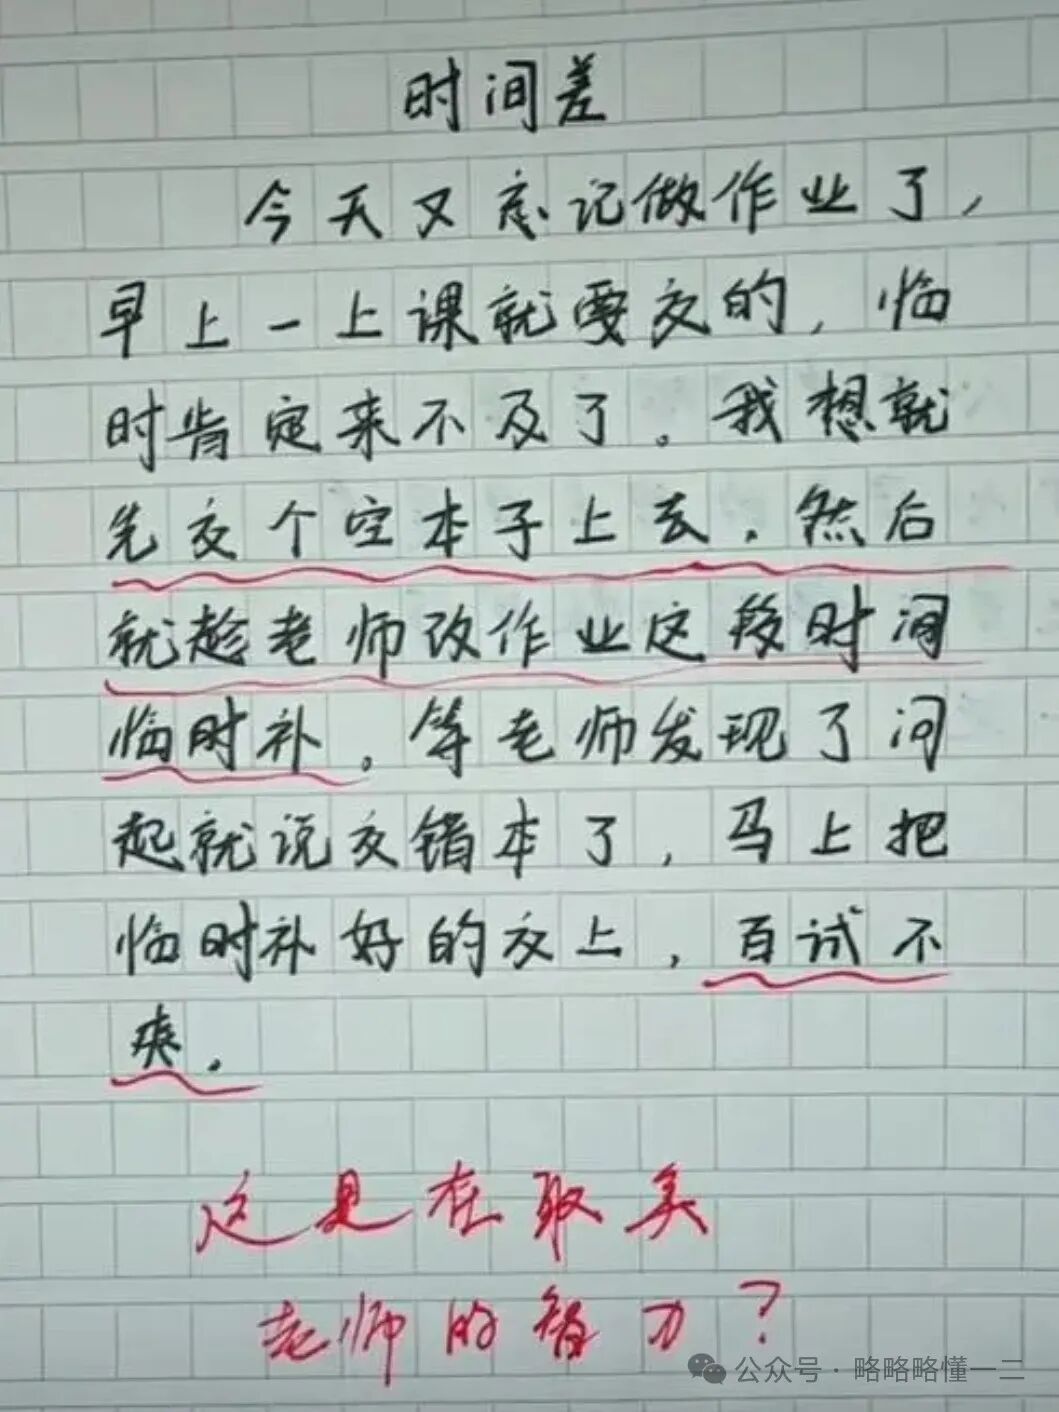 时间差
今天又忘记做作业了,
早上一上课就要交的,临
时肯定来不及了。我想就
先交个空本子上去.然后
就趁老师改作业这段时间
临时补。等老师发现了问
起就说交错本了,马上把
临时补好的交上,百试不
爽.
这是在取笑
老师的智力?
公众号·略略略懂一二